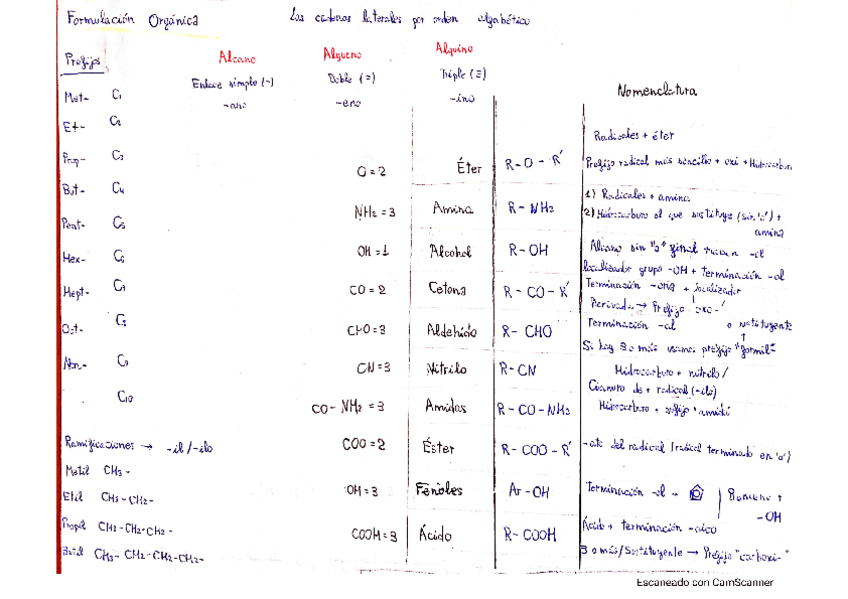 Formulación Orgánica
Las cadenas laterales por orden alfabético
Prefijos
Alcano
Alqueno
Alquino
Enlace simple (-)
Doble (=)
Triple (≡)
-ano
-eno
-ino
Nomenclatura
Met- C1
Et- C2
Prop- C3
But- C4
Pent- C5
Hex- C6
Hept- C7
Oct- C8
Non- C9
C10
O = 2 Éter R-O-R'
Radicales + éter
Prefijo radical más sencillo + oxi + Hidrocarburo
NH2 = 3 Amina R-NH2
1) Radicales + amina
2) Hidrocarburo al que sustituye (sin "o") +
amina
OH = 1 Alcohol R-OH
Alcano sin "o" final -ol
localizador grupo -OH + terminación -ol
CO = 2 Cetona R-CO-R'
Terminación -ona + localizador
Derivado → Prefijo "oxo-"
CHO = 3 Aldehído R-CHO
Terminación -al
o sustituyente
Si hay 3 o más usamos prefijo "formil-"
CN = 3 Nitrilo R-CN
Hidrocarburo + nitrilo /
Cianuro de + radical (-ilo)
CO-NH2 = 3 Amidas R-CO-NH2
Hidrocarburo + sufijo
COO = 2 Éster R-COO-R'
-ato del radical (radical terminado en "o")
OH = 3 Fenoles Ar-OH
Terminación -ol →
Benceno +
-OH
COOH = 3 Ácido R-COOH
Ácido + terminación -oico
3 o más/Sustituyente → Prefijo "carboxi-"
Ramificaciones → -il/-ilo
Metil CH3-
Etil CH3-CH2-
Propil CH3-CH2-CH2-
Butil CH3-CH2-CH2-CH2-
Escaneado con CamScanner